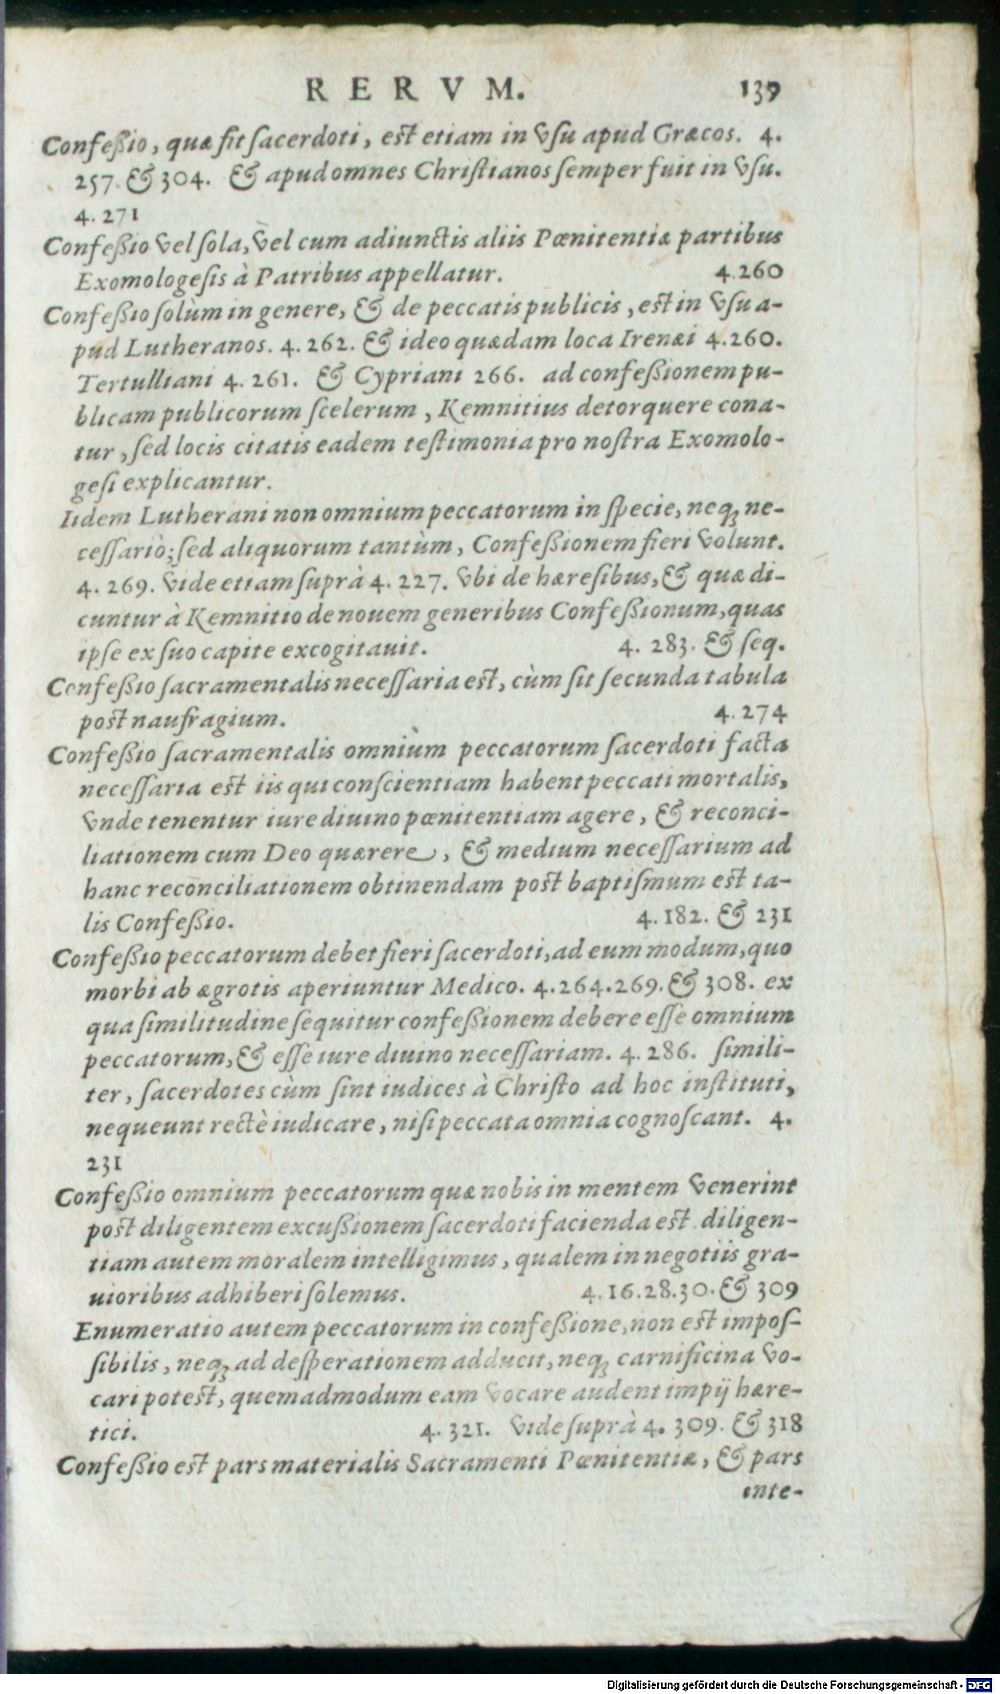 RERVM. 139
Confeßio, quæ fit ſacerdoti, eſt etiam in vſu apud Græcos. 4.
257. & 304. & apud omnes Chriſtianos ſemper fuit in vſu.
4. 271
Confeßio vel ſola, vel cum adiunctis aliis Pœnitentiæ partibus
Exomologeſis à Patribus appellatur. 4.260
Confeßio ſolùm in genere, & de peccatis publicis, eſt in vſu a-
pud Lutheranos. 4. 262. & ideo quædam loca Irenæi 4.260.
Tertulliani 4. 261. & Cypriani 266. ad confeßionem pu-
blicam publicorum ſcelerum, Kemnitius detorquere cona-
tur, ſed locis citatis eadem teſtimonia pro noſtra Exomolo-
geſi explicantur.
Iidem Lutherani non omnium peccatorum in ſpecie, neqꝫ ne-
ceſſariò; ſed aliquorum tantùm, Confeßionem fieri volunt.
4. 269. vide etiam ſuprà 4. 227. vbi de hæreſibus, & quæ di-
cuntur à Kemnitio de nouem generibus Confeßionum, quas
ipſe ex ſuo capite excogitauit. 4. 283. & ſeq.
Confeßio ſacramentalis neceſſaria eſt, cùm ſit ſecunda tabula
poſt naufragium. 4. 274
Confeßio ſacramentalis omniùm peccatorum ſacerdoti facta
neceſſaria eſt iis qui conſcientiam habent peccati mortalis,
vnde tenentur iure diuino pœnitentiam agere, & reconci-
liationem cum Deo quærere, & medium neceſſarium ad
hanc reconciliationem obtinendam poſt baptiſmum eſt ta-
lis Confeßio. 4. 182. & 231
Confeßio peccatorum debet fieri ſacerdoti, ad eum modum, quo
morbi ab ægrotis aperiuntur Medico. 4.264.269. & 308. ex
qua ſimilitudine ſequitur confeßionem debere eſſe omnium
peccatorum, & eſſe iure diuino neceſſariam. 4. 286. ſimili-
ter, ſacerdotes cùm ſint iudices à Chriſto ad hoc inſtituti,
nequeunt rectè iudicare, niſi peccata omnia cognoſcant. 4.
231
Confeßio omnium peccatorum quæ nobis in mentem venerint
poſt diligentem excußionem ſacerdoti facienda eſt. diligen-
tiam autem moralem intelligimus, qualem in negotiis gra-
uioribus adhiberi ſolemus. 4. 16.28.30. & 309
Enumeratio autem peccatorum in confeßione, non eſt impoſ-
ſibilis, neqꝫ ad deſperationem adducit, neqꝫ carnificina vo-
cari poteſt, quemadmodum eam vocare audent impij hære-
tici. 4. 321. vide ſuprà 4. 309. & 318
Confeßio eſt pars materialis Sacramenti Pœnitentiæ, & pars
inte-
Digitalisierung gefördert durch die Deutsche Forschungsgemeinschaft - DFG